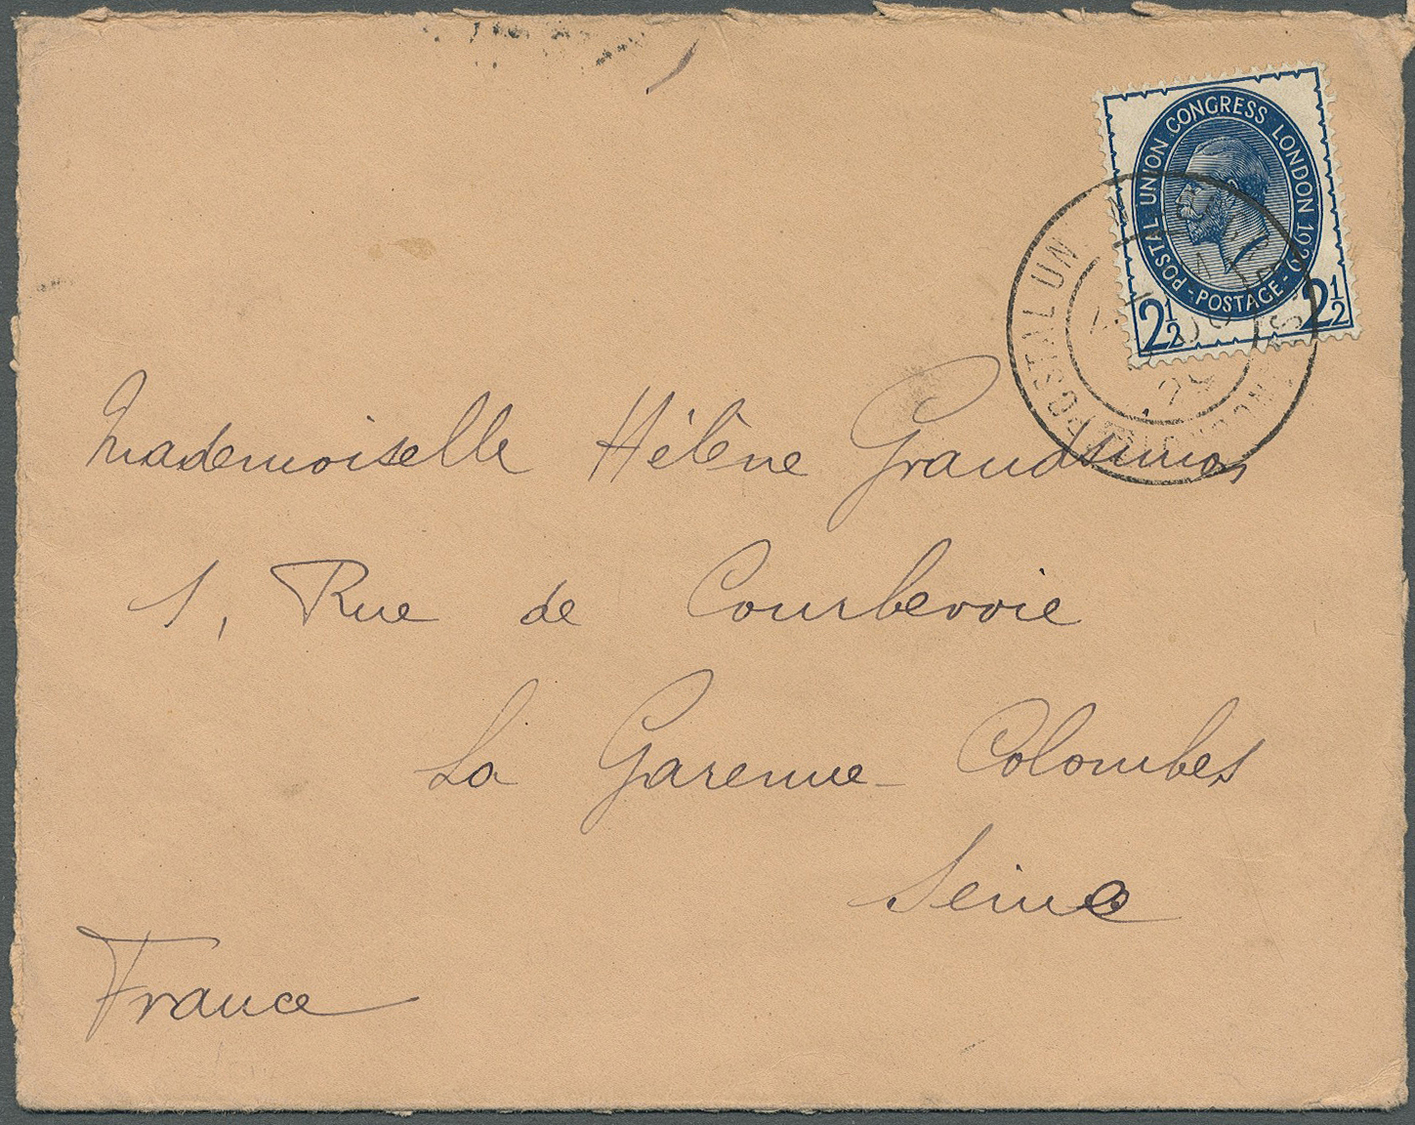 POSTAL UNION CONGRESS LONDON 1929
- POSTAGE -
2½ 2½
POSTAL UN
29
Mademoiselle Hélène Grandsimon
1, Rue de Courbevoie
La Garenne-Colombes
Seine
France